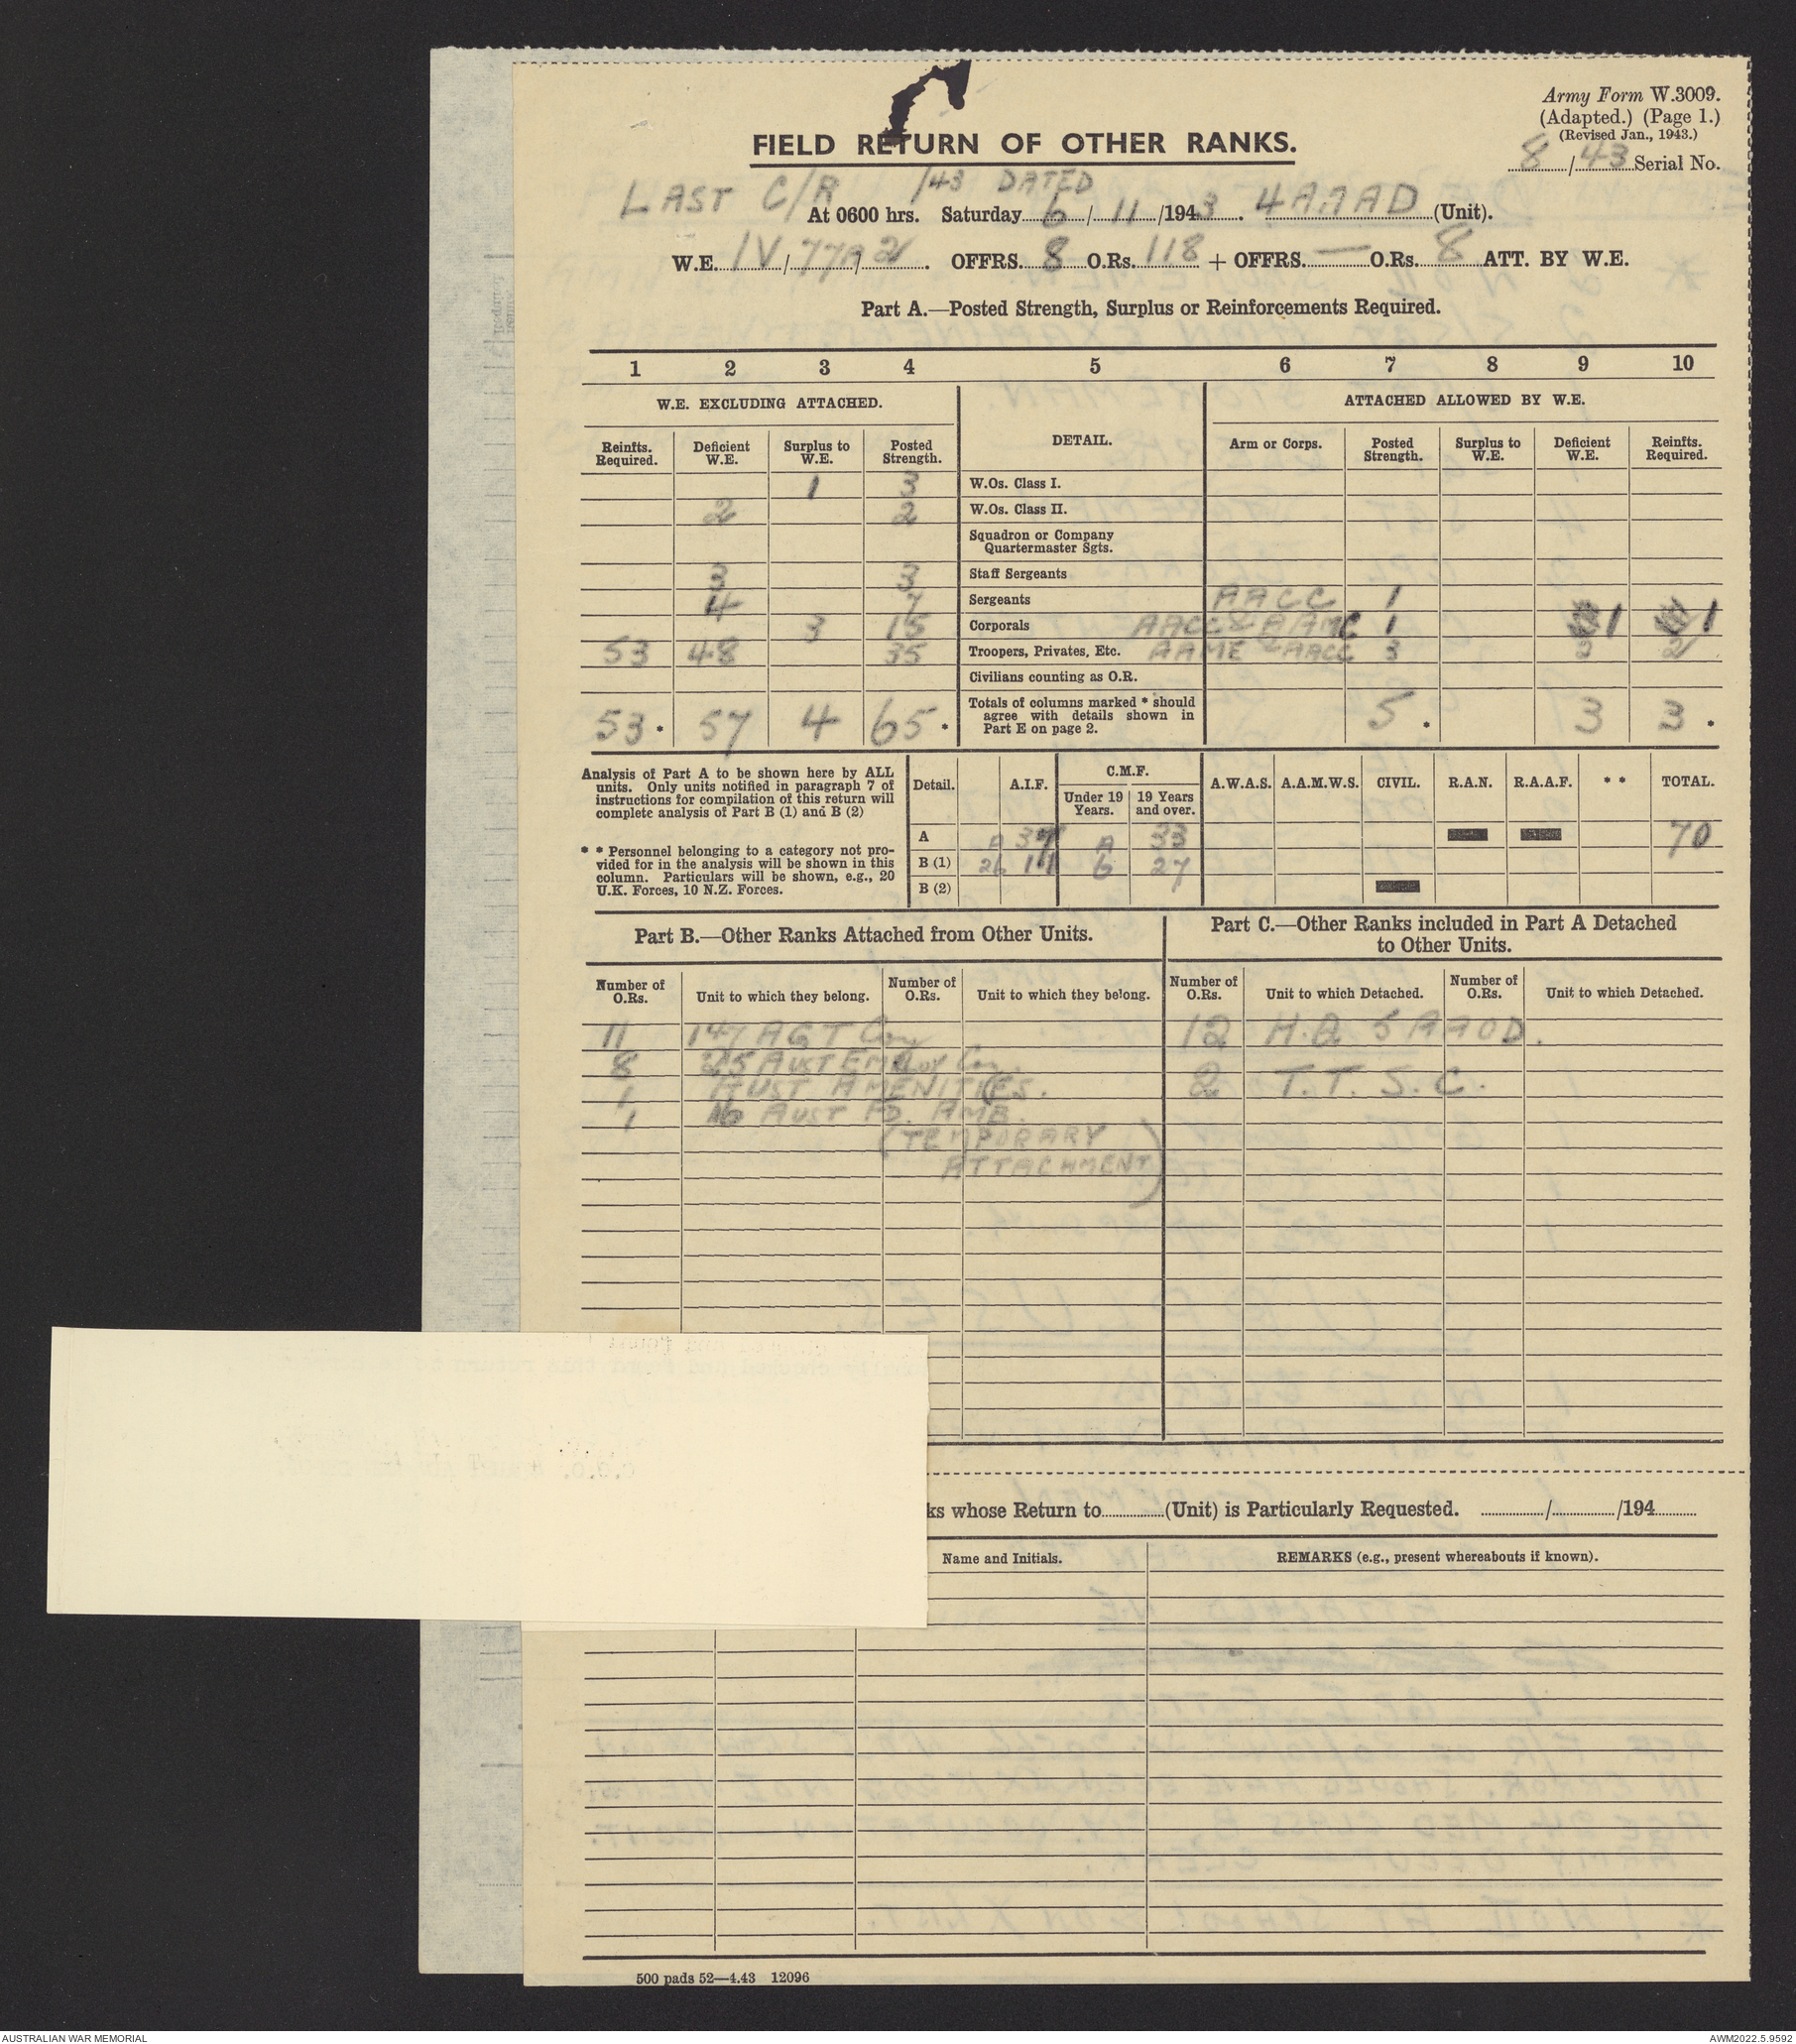 Army Form W.3009.
(Adapted.) (Page 1.)
(Revised Jan., 1943.)
8/43 Serial No.
FIELD RETURN OF OTHER RANKS.
LAST C/R /43 DATED
At 0600 hrs. Saturday 6/11/1943. 4 AAAD (Unit).
W.E. IV/77A/2. OFFRS. 8 O.Rs. 118 + OFFRS. — O.Rs. 8 ATT. BY W.E.
Part A.—Posted Strength, Surplus or Reinforcements Required.
1 2 3 4 5 6 7 8 9 10
W.E. EXCLUDING ATTACHED. DETAIL. ATTACHED ALLOWED BY W.E.
Reinfts. Required. Deficient W.E. Surplus to W.E. Posted Strength. Arm or Corps. Posted Strength. Surplus to W.E. Deficient W.E. Reinfts. Required.
1 3 W.Os. Class I.
2 2 W.Os. Class II.
Squadron or Company Quartermaster Sgts.
3 3 Staff Sergeants
4 7 Sergeants AACC 1
3 15 Corporals AACC & AAMC 1 1 1
53 48 35 Troopers, Privates, Etc. AAME & AACC 3 2
Civilians counting as O.R.
53 * 57 4 65 * Totals of columns marked * should agree with details shown in Part E on page 2. 5 * 3 3 *
Analysis of Part A to be shown here by ALL
units. Only units notified in paragraph 7 of
instructions for compilation of this return will
complete analysis of Part B (1) and B (2)
* * Personnel belonging to a category not pro-
vided for in the analysis will be shown in this
column. Particulars will be shown, e.g., 20
U.K. Forces, 10 N.Z. Forces.
Detail. A.I.F. C.M.F. A.W.A.S. A.A.M.W.S. CIVIL. R.A.N. R.A.A.F. * * TOTAL.
Under 19 Years. 19 Years and over.
A A 37 A 33 70
B (1) 26 11 6 27
B (2)
Part B.—Other Ranks Attached from Other Units.
Part C.—Other Ranks included in Part A Detached
to Other Units.
Number of O.Rs. Unit to which they belong. Number of O.Rs. Unit to which they belong. Number of O.Rs. Unit to which Detached. Number of O.Rs. Unit to which Detached.
11 147 AGT Coy 12 H.Q 5 AAOD.
8 25 AUST EMPLOY Coy.
1 AUST AMENITIES. 2 T.T.S.C.
1 16 AUST FD. AMB.
(TEMPORARY
ATTACHMENT)
ks whose Return to (Unit) is Particularly Requested. / /194
Name and Initials. REMARKS (e.g., present whereabouts if known).
500 pads 52—4.43 12096
AUSTRALIAN WAR MEMORIAL
AWM2022.5.9592